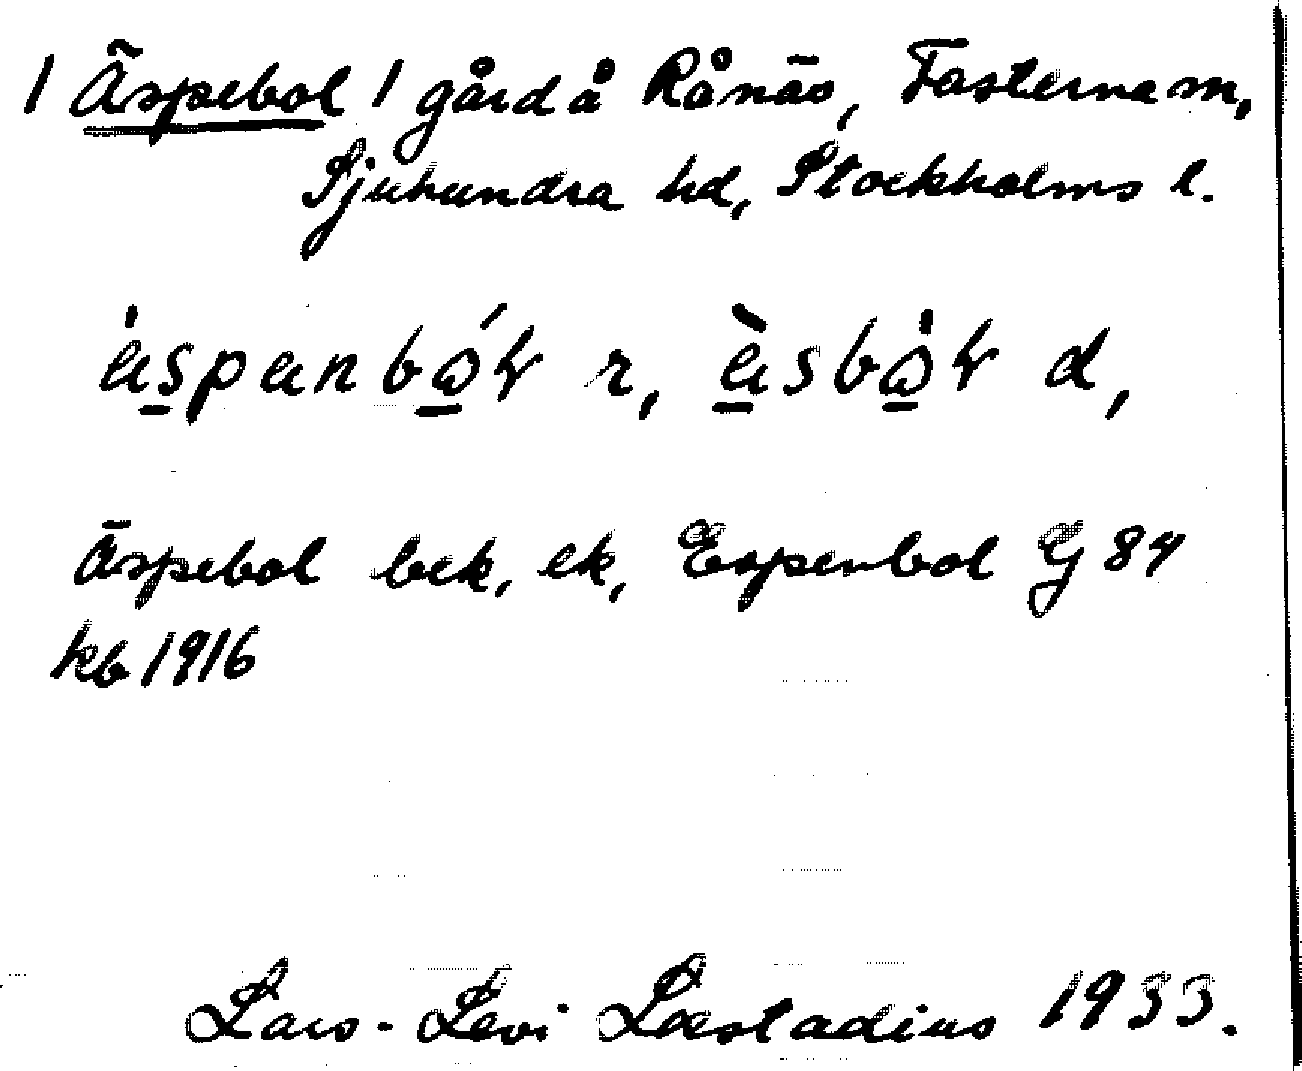 / Äspebol / gård å Rånäs, Fasterna sn,
Sjuhundra hd, Stockholms l.
r, d,
Äspebol bek, ek, Espenbol GJ 84
kb 1916
Lars-Levi Læstadius 1933.